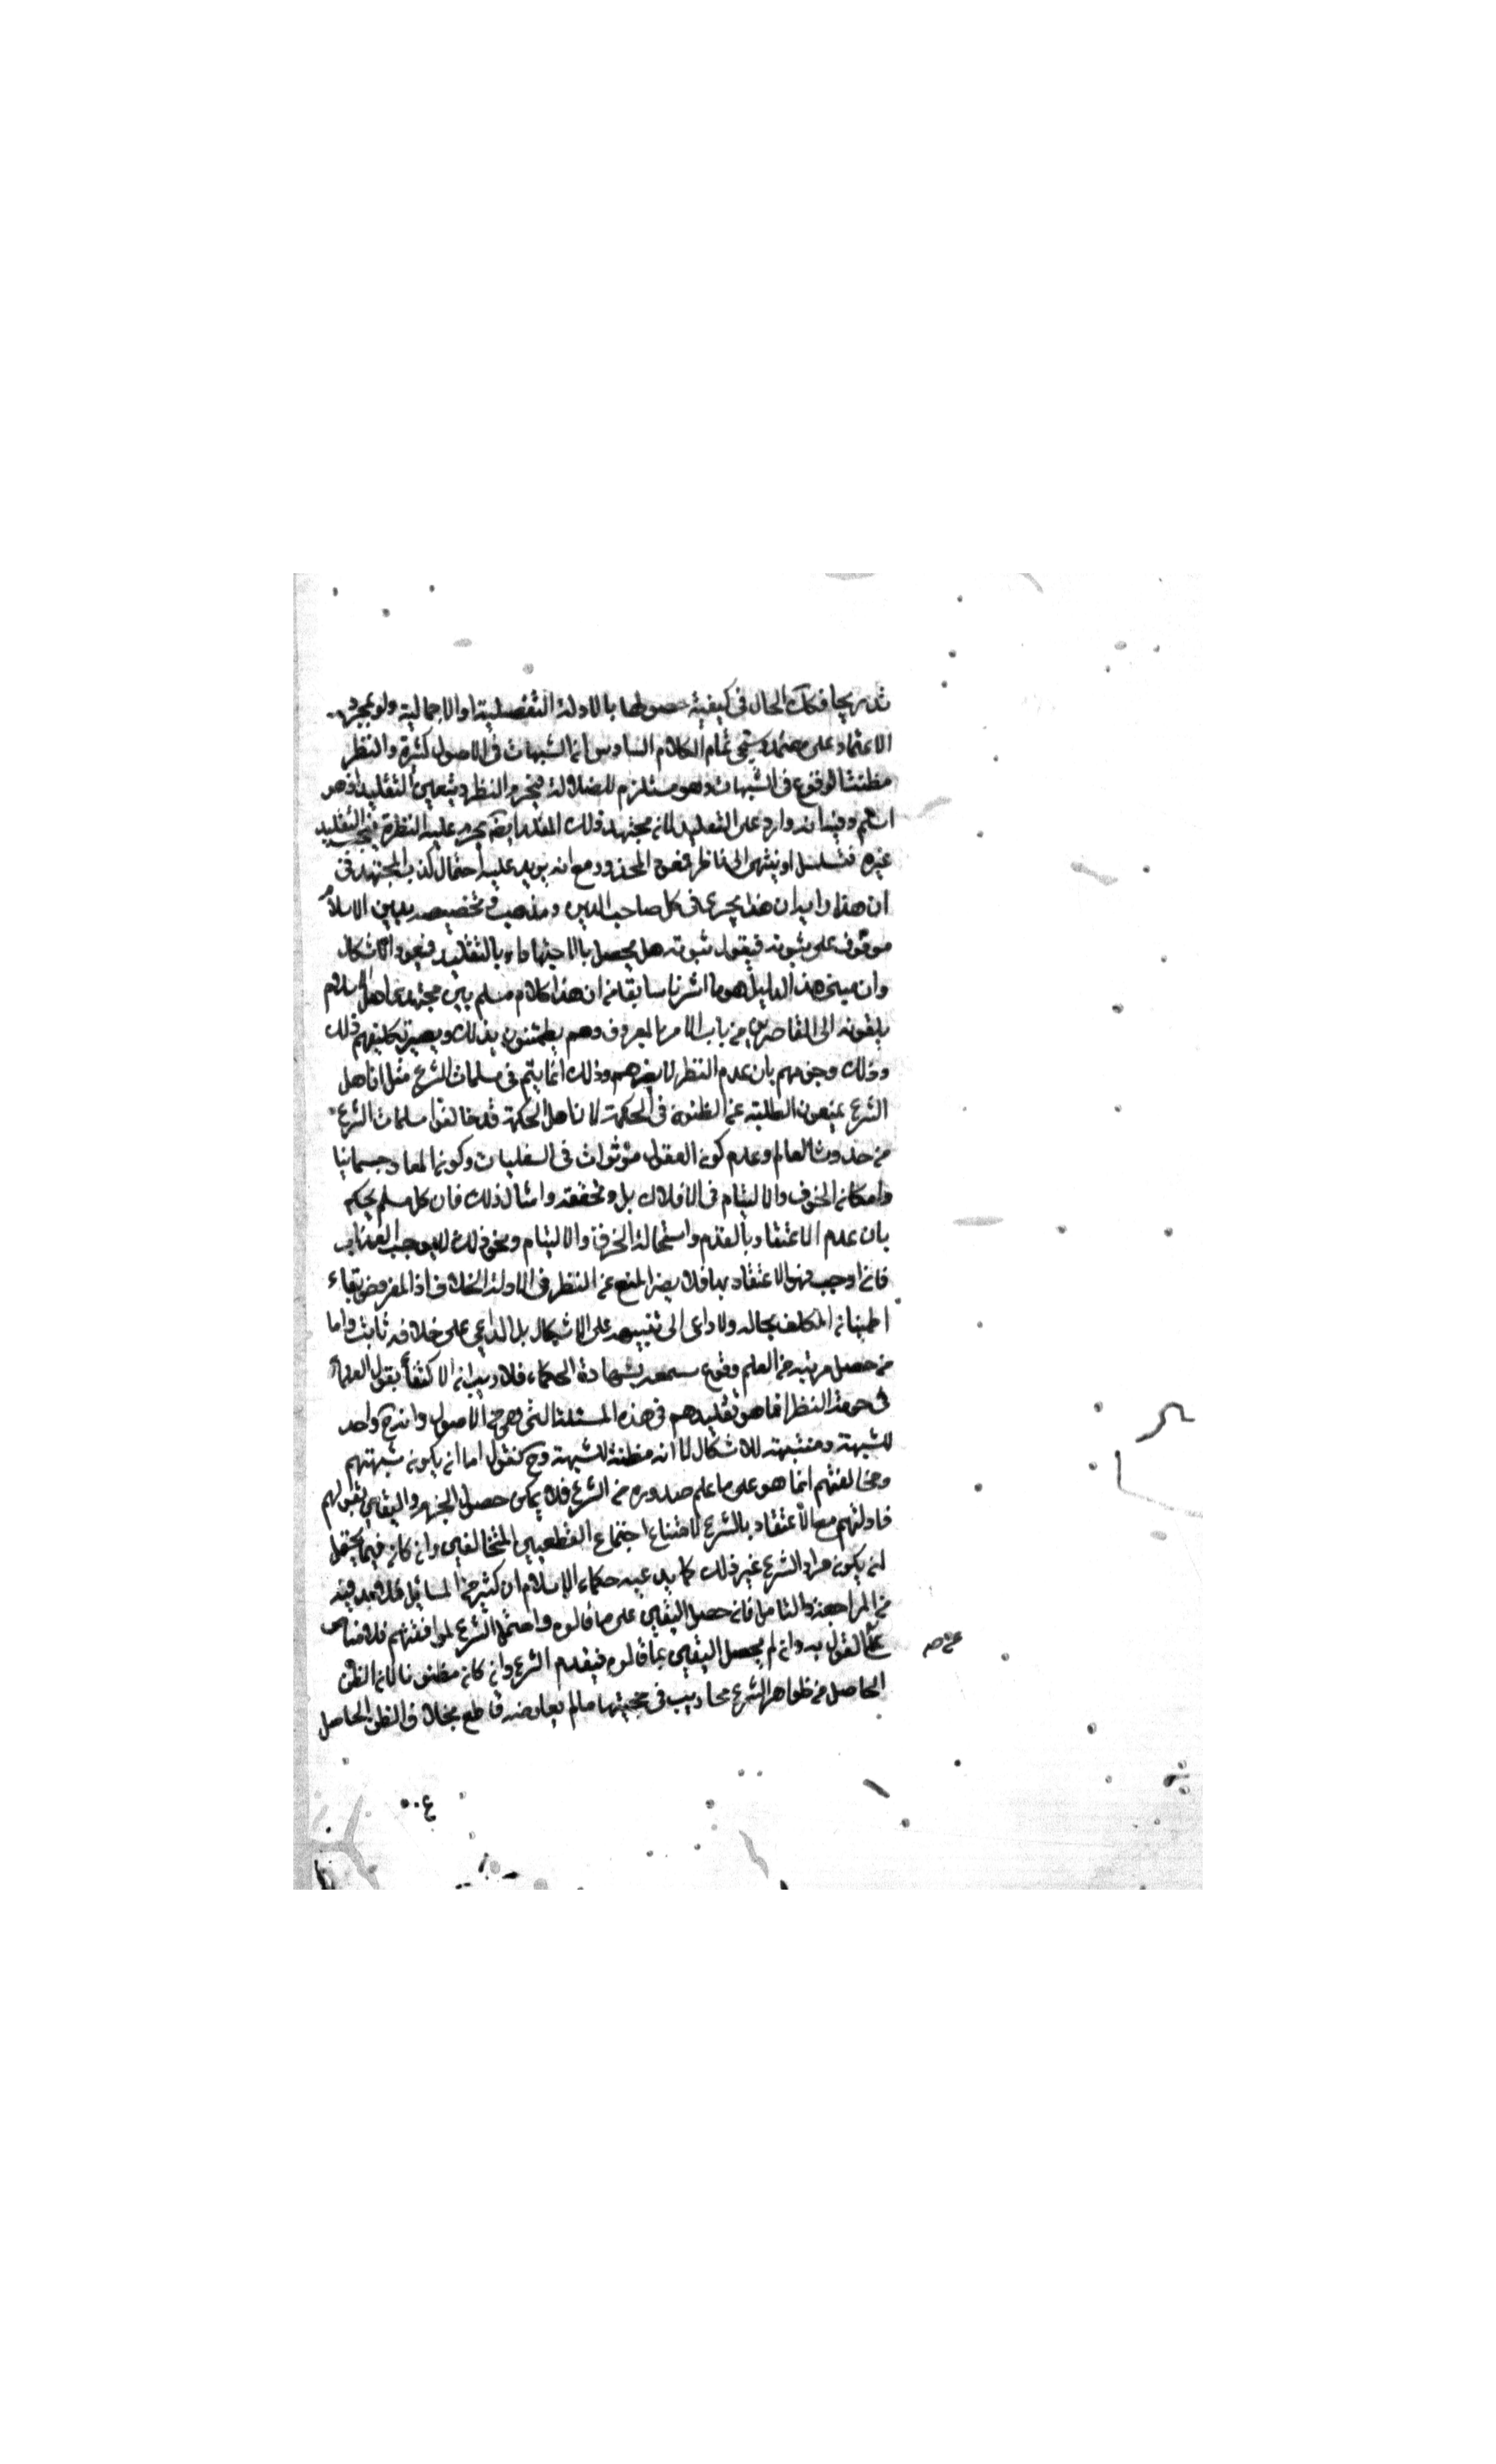 تدريجا فكك الحال فى كيفية حصولها بالادلة التفصيلية او الاجمالية ولو بمجرد
الاعتماد على معتمد وسيجئ تمام الكلام السادس ان الشبهات فى الاصول كثيرة والنظر
مظنة الوقوع فى الشبهات وهو مستلزم للضلالة فيحرم النظر ويتعين التقليد اذ هو
اسلم وفيه انه وارد على التقليد لان مجتهد ذلك المقلد ايضا يحرم عليه النظر فيجب التقليد
غيره فتسلسل او ينتهى الى ناظر فيعود المحذور مع انه يزيد عليه احتمال كذب المجتهد فى
ان هذا رايه ان هذا يجرى فى كل صاحب دين ومذهب وتخصيصه بدين الاسلام
موقوف على ثبوته فيقول ثبوته هل يحصل بالاجتهاد او بالتقليد فيعود الاشكال
وان مبنى هذا الدليل هو ما اشرنا سابقا من ان هذا كلام مسلم بين مجتهدى اهل الاسلام
يلقونه الى القاصرين من باب الامر بالمعروف وهم يطمئنون بذلك ويصير تكليفهم ذلك
وذلك وجزمهم بان عدم النظر لا يضرهم وذلك انما يتم فى مسلمات الشرع مثل ان اهل
الشرع يمنعون الطلبة عن الظنون فى الحكمة لان اهل الحكمة قد خالفوا مسلمات الشرع
من حدوث العالم وعدم كون العقول مؤثرات فى السفليات وكون المعاد جسمانيا
وامكان الخرق والالتيام فى الافلاك بل وتحققه وامثال ذلك فان كل مسلم يحكم
بان عدم الاعتقاد بالقدم واستحالة الخرق والالتيام ونحو ذلك لا يوجب العذاب
فان اوجب فهو الاعتقاد بها فلا يضر المنع عن النظر فى الادلة الخلاف اذ المفروض بقاء
اطمينان المكلف بحاله ولا داعى الى تنبيهه على الاشكال بل الداعى على خلافه ثابت واما
من حصل مرتبة من العلم وقرع سمعه شهادة الحكماء فلا ريب ان الاكتفاء بقول العلماء
فى حرمة النظر انما هو تقليدهم فى هذه المسئلة التى هى من الاصول وان واحد
للشبهة ومنتبهة للاشكال لا انه مظنة للشبهة وح نقول اما ان يكون شبهتهم
ومخالفتهم انما هو على ما علم صدوره من الشرع فلا يمكن حصول الجزم واليقين بقولهم
فادلتهم مع الاعتقاد بالشرع لامتناع اجتماع القطعيين المتخالفين وان كان فيما يحتمل
ان يكون مراد الشرع غير ذلك كما يدعيه حكماء الاسلام فى كثير من المسائل فلابد فيه
من المراجعة والتامل فان حصل اليقين على ما قالوه واحتمل الشرع لموافقتهم فلا مناص
عن القول به وان لم يحصل اليقين بما قالوه فيقدم الشرع وان كان مظنونا لان الظن
الحاصل من ظواهر الشرع مما لا ريب فى حجيتها ما لم يعارضه قاطع بخلاف الظن الحاصل